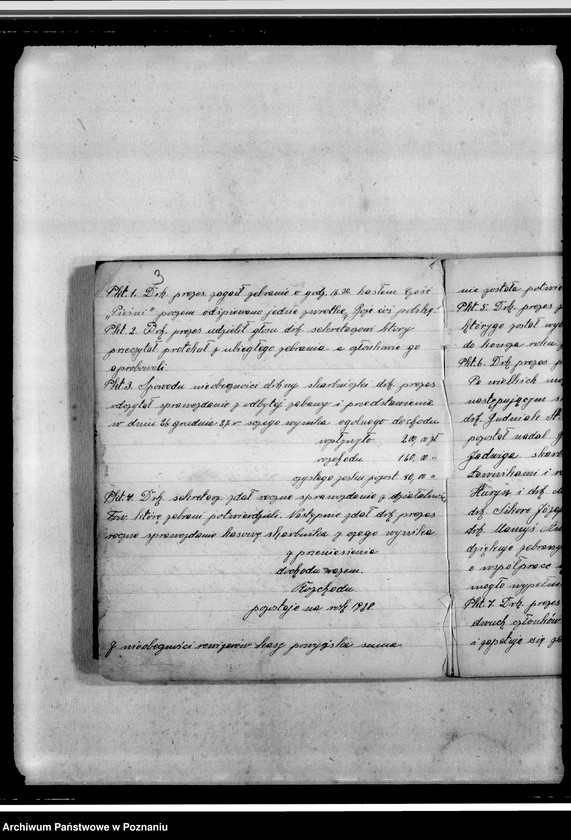 3
Pkt. 1. Drh. prezes zagaił zebranie o godz. 16.30 hasłem Cześć
„Pieśni" poczem odśpiewano jedną zwrotkę „Boże coś polskę."
Pkt. 2. Drh. prezes udzielił głosu drh. sekretarzowi który
przeczytał protokuł z ubiegłego zebrania a głośnano go
aprobowali.
Pkt. 3. Spowodu nieobecności drhny skarbniczki drh. prezes
odczytał sprawozdanie z odbytej zabawy i przedstawienia
w dniu 26 grudnia 37 r. czego wynika ogólnego dochodu
wpłynęło 200,00 zł
rozchodu 160,00 "
czystego zysku pozost. 40,00 "
Pkt. 4. Drh. sekretarz zdał roczne sprawozdanie z działalności
Tow. które zebrani potwierdzili. Następnie zdał drh. prezes
roczne sprawozdanie kasowe skarbnika z czego wynika
z przeniesienia
dochodu razem.
Rozchodu.
pozostaje na rok 1938
Z nieobecności rewizorów kasy przyjęła suma
nie została potwier
Pkt. 5. Drh. prezes
którego został wy
do końca roku
Pkt. 6. Drh. prezes
Po wielkich
następującym
drh. Judniak St.
pozostał nadal
Jadwiga skar
Ławnikami i
Kurysz i drh.
drh. Sikora Józef
drh.
dziękuje zebrany
o współpracę
mogło wypełni
Pkt. 7. Drh. prezes
dwuch członków
i zapytuje się
Archiwum Państwowe w Poznaniu